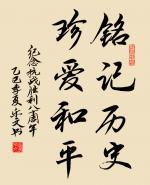 铭记历史
珍爱和平
纪念抗战胜利八周年
乙巳季夏
书